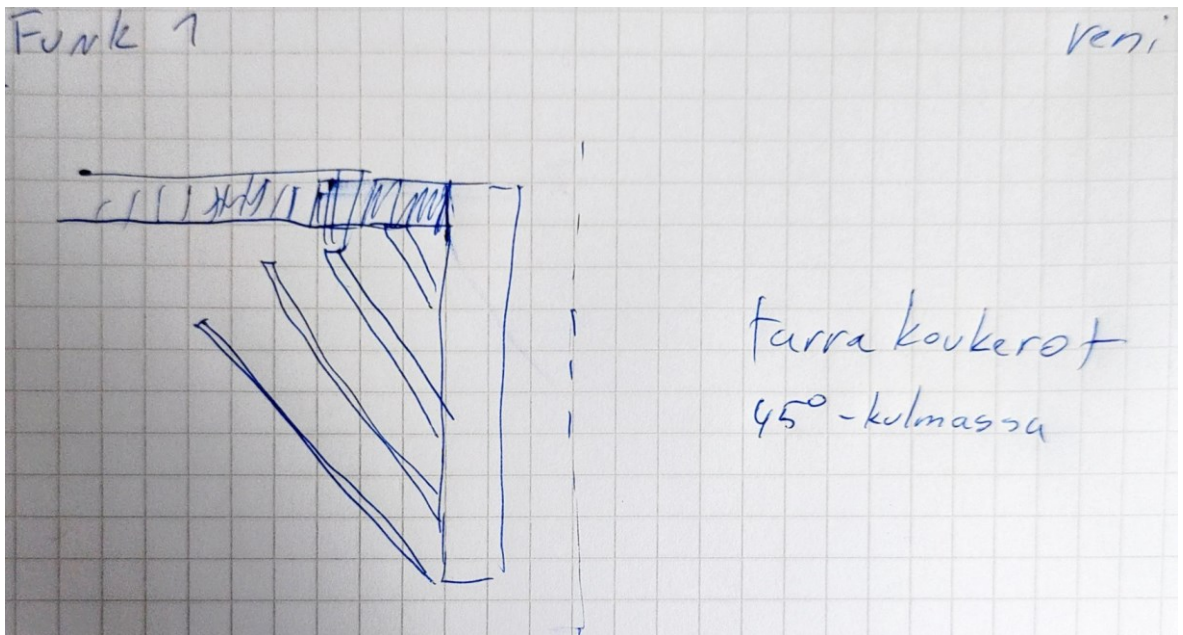 Funk 1
veni
tarra koukerot
45° - kulmassa